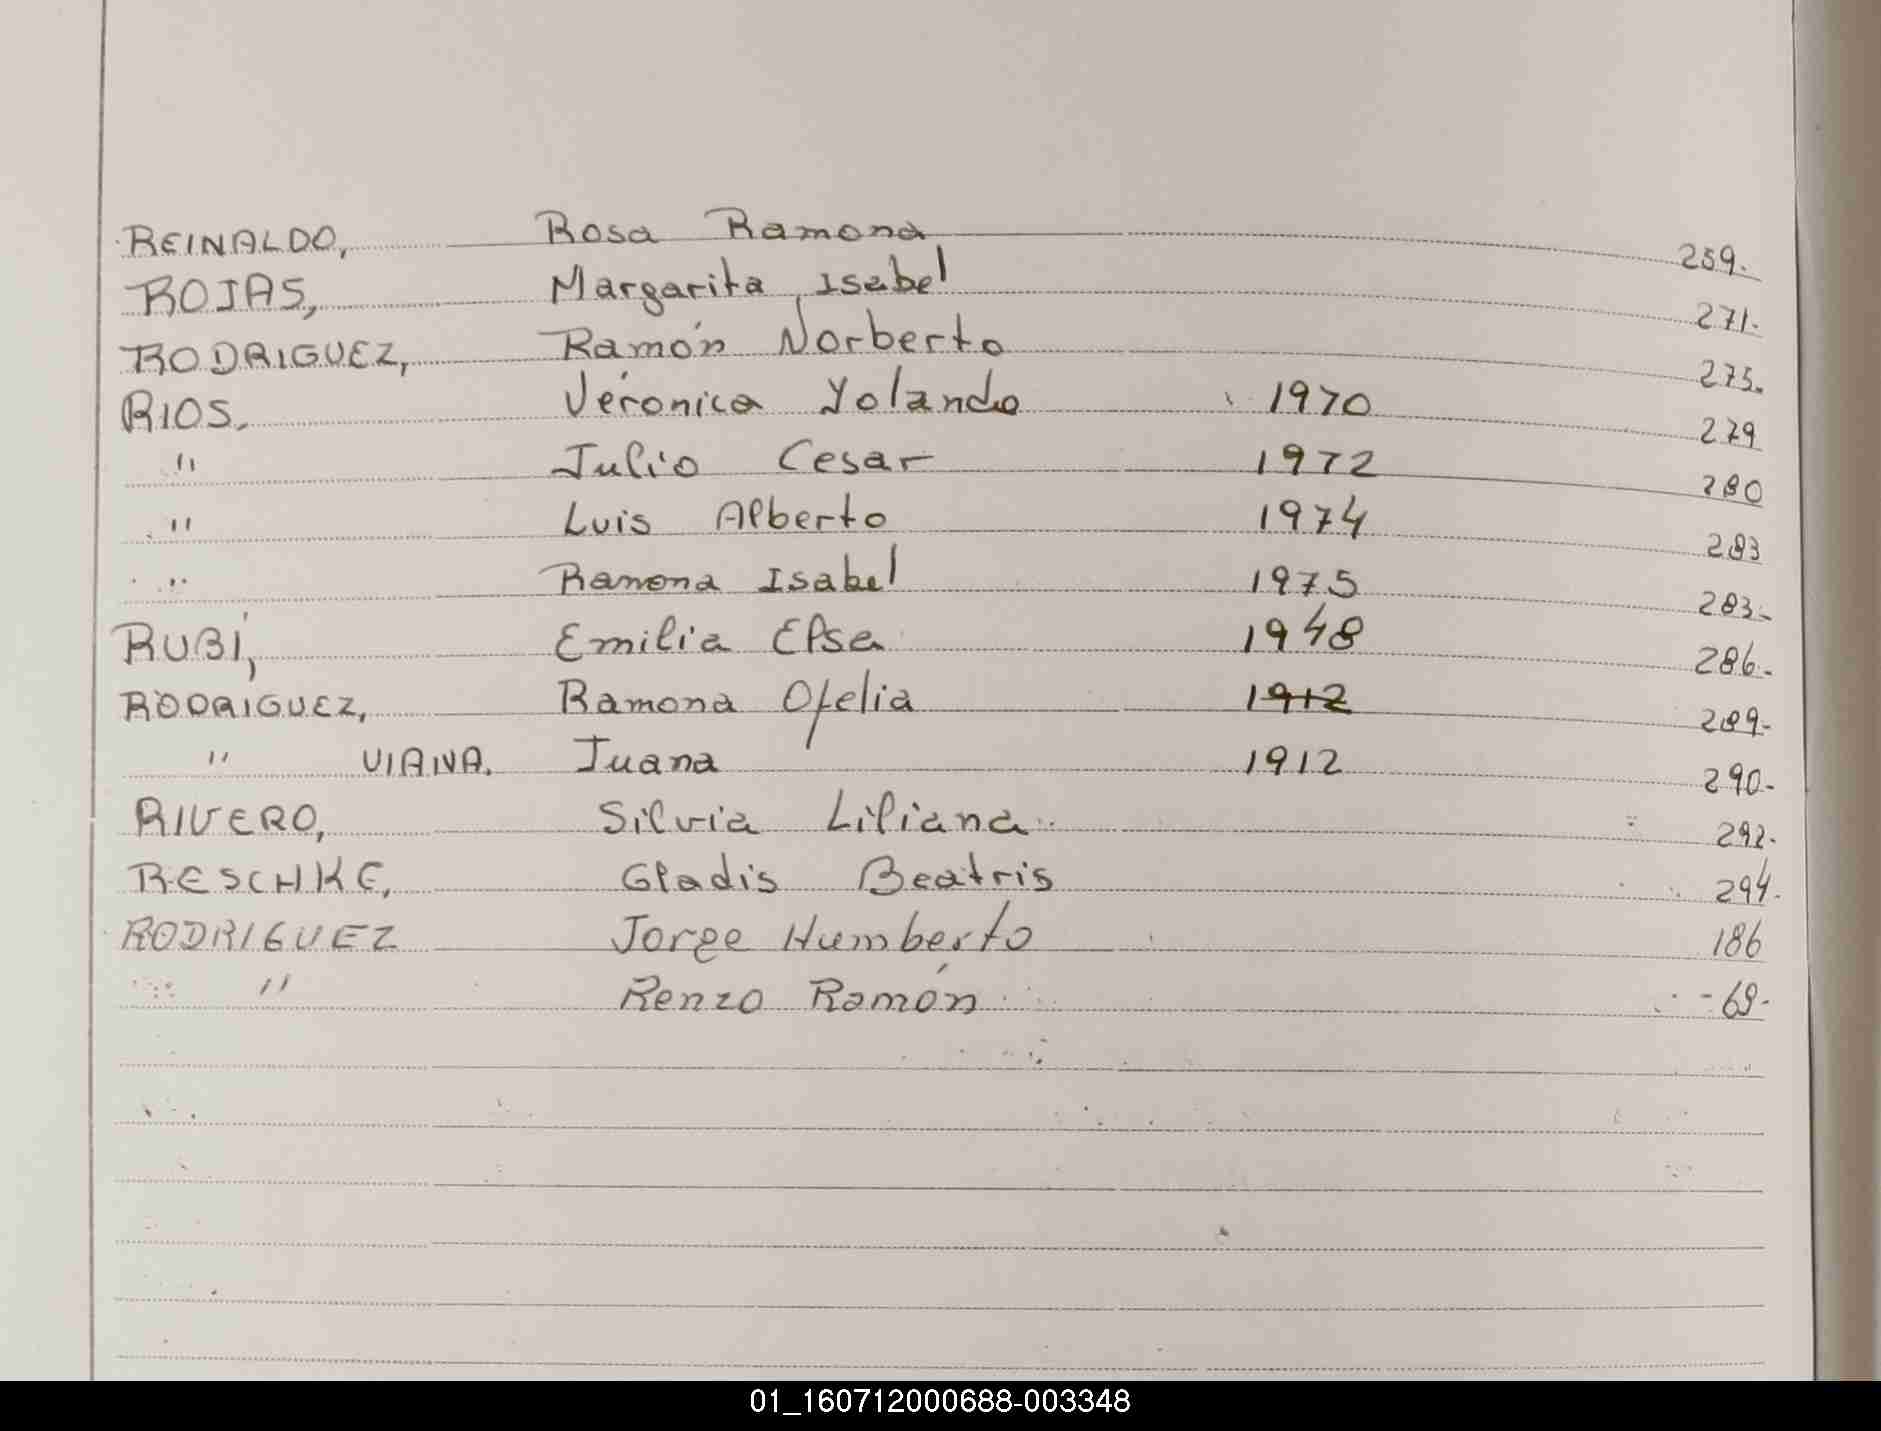 REINALDO, Rosa Ramona 259.
ROJAS, Margarita Isabel 271.
RODRIGUEZ, Ramón Norberto 275.
RIOS, Verónica Yolanda 1970 279
" Julio Cesar 1972 280
" Luis Alberto 1974 283
" Ramona Isabel 1975 283-
RUBÍ, Emilia Elsa 1948 286-
RODRIGUEZ, Ramona Ofelia 1912 289-
" VIANA. Juana 1912 290-
RIVERO, Silvia Liliana 292-
RESCHKE, Gladis Beatris 294-
RODRIGUEZ Jorge Humberto 186
" Renzo Ramón -69-
01_160712000688-003348